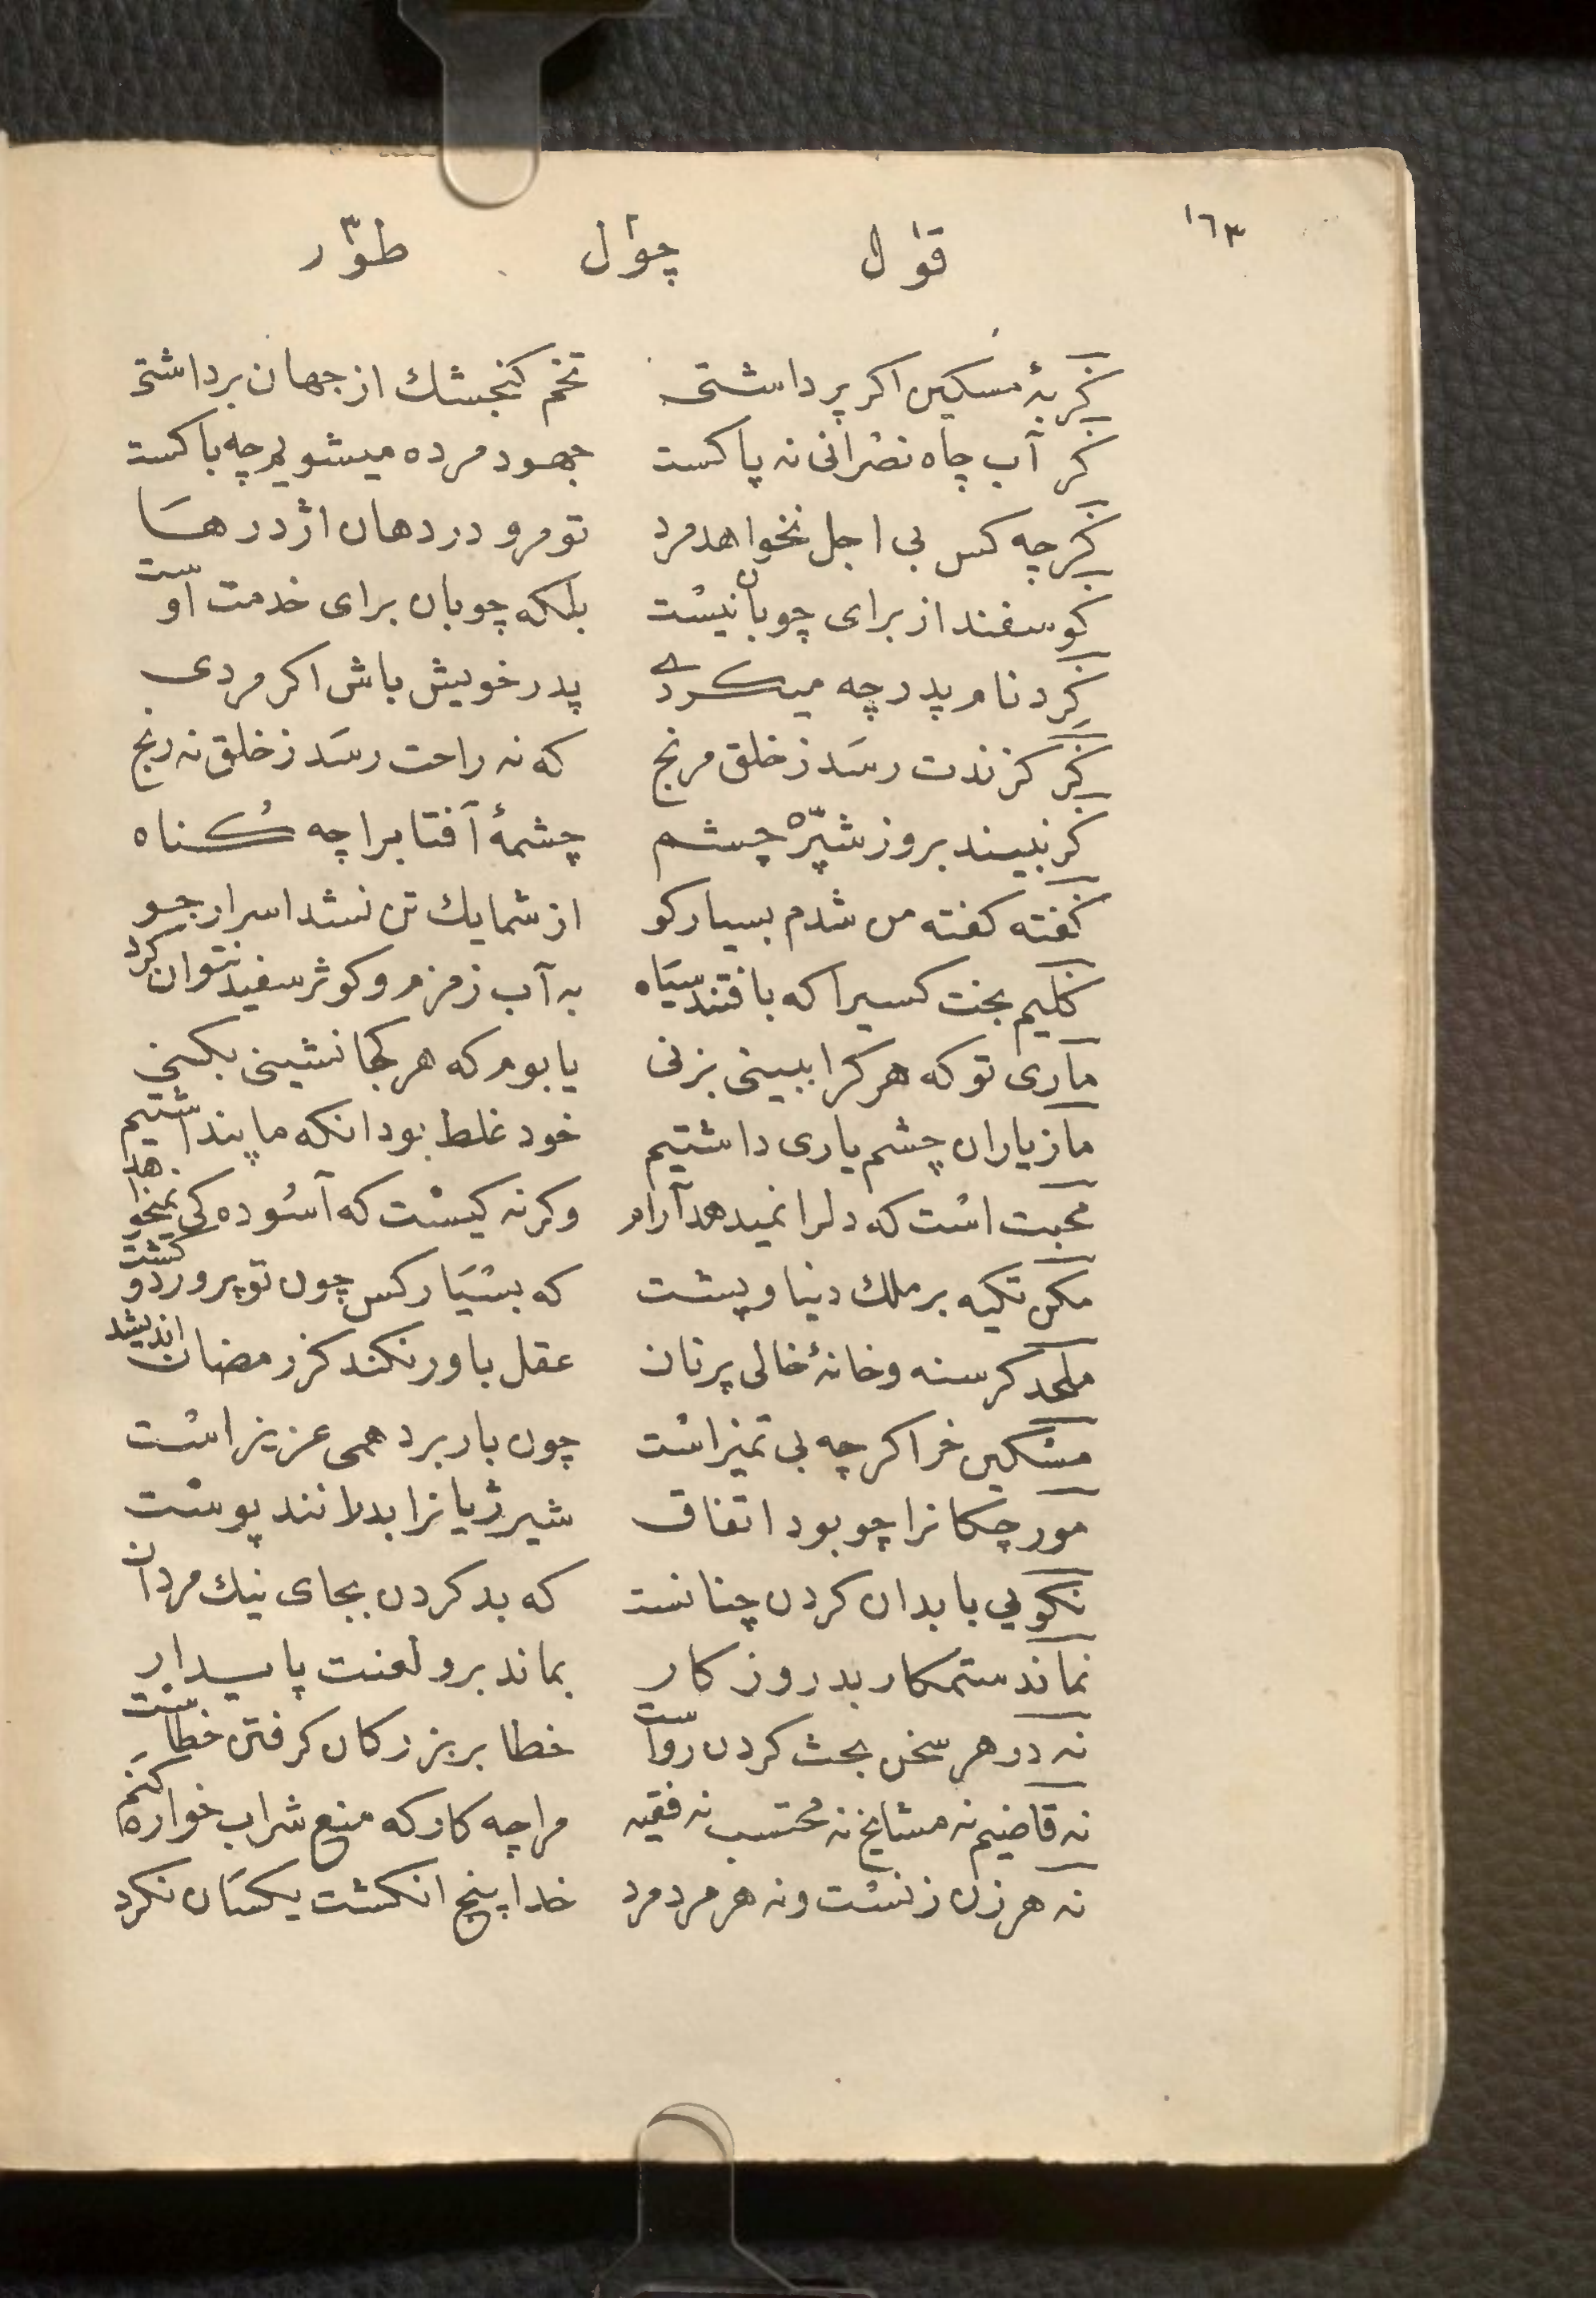 ١٦٣
قول چول طور
کربهٔ مسکین اکر پر داشتی تخم کنجشك از جهان برداشتی
کر آب چاه نصرانی نه پاکست جهود مرده میشویم چه باکست
کرچه کس بی اجل نخواهد مرد تو مرو در دهان اژدرها
کوسفند از برای چوبان نیست بلکه چوبان برای خدمت اوست
کرد نام پدر چه میکردی پدر خویش باش اکر مردی
کر کزندت رسد ز خلق مرنج که نه راحت رسد ز خلق نه رنج
کر نبیند بروز شپّره چشم چشمهٔ آفتابرا چه کناه
کفته کفته من شدم بسیار کو از شما یك تن نشد اسرار جو
کلیم بخت کسیرا که بافتند سیاه به آب زمزم و کوثر سفید نتوان کرد
ماری تو که هر کرا ببینی بزنی یا بوم که هر کجا نشینی بکنی
ما ز یاران چشم یاری داشتیم خود غلط بود انکه ما پنداشتیم
محبت است که دلرا نمیدهد آرام وکرنه کیست که آسوده کی نمیخواهد
مکن تکیه بر ملك دنیا و پشت که بسیار کس چون تو پرورد و کشت
ملحد کرسنه و خانهٔ خالی پر نان عقل باور نکند کز رمضان اندیشد
مسکین خر اکرچه بی تمیز است چون بار برد همی عزیز است
مورچکانرا چو بود اتفاق شیر ژیانرا بدرانند پوست
نکویی با بدان کردن چنانست که بد کردن بجای نیك مردان
نماند ستمکار بد روزکار بماند برو لعنت پایدار
نه در هر سخن بحث کردن رواست خطا بر بزرکان کرفتن خطاست
نه قاضیم نه مشایخ نه محتسب نه فقیه مرا چه کار که منع شراب خواره کنم
نه هر زن زنست و نه هر مرد مرد خدا پنج انکشت یکسان نکرد